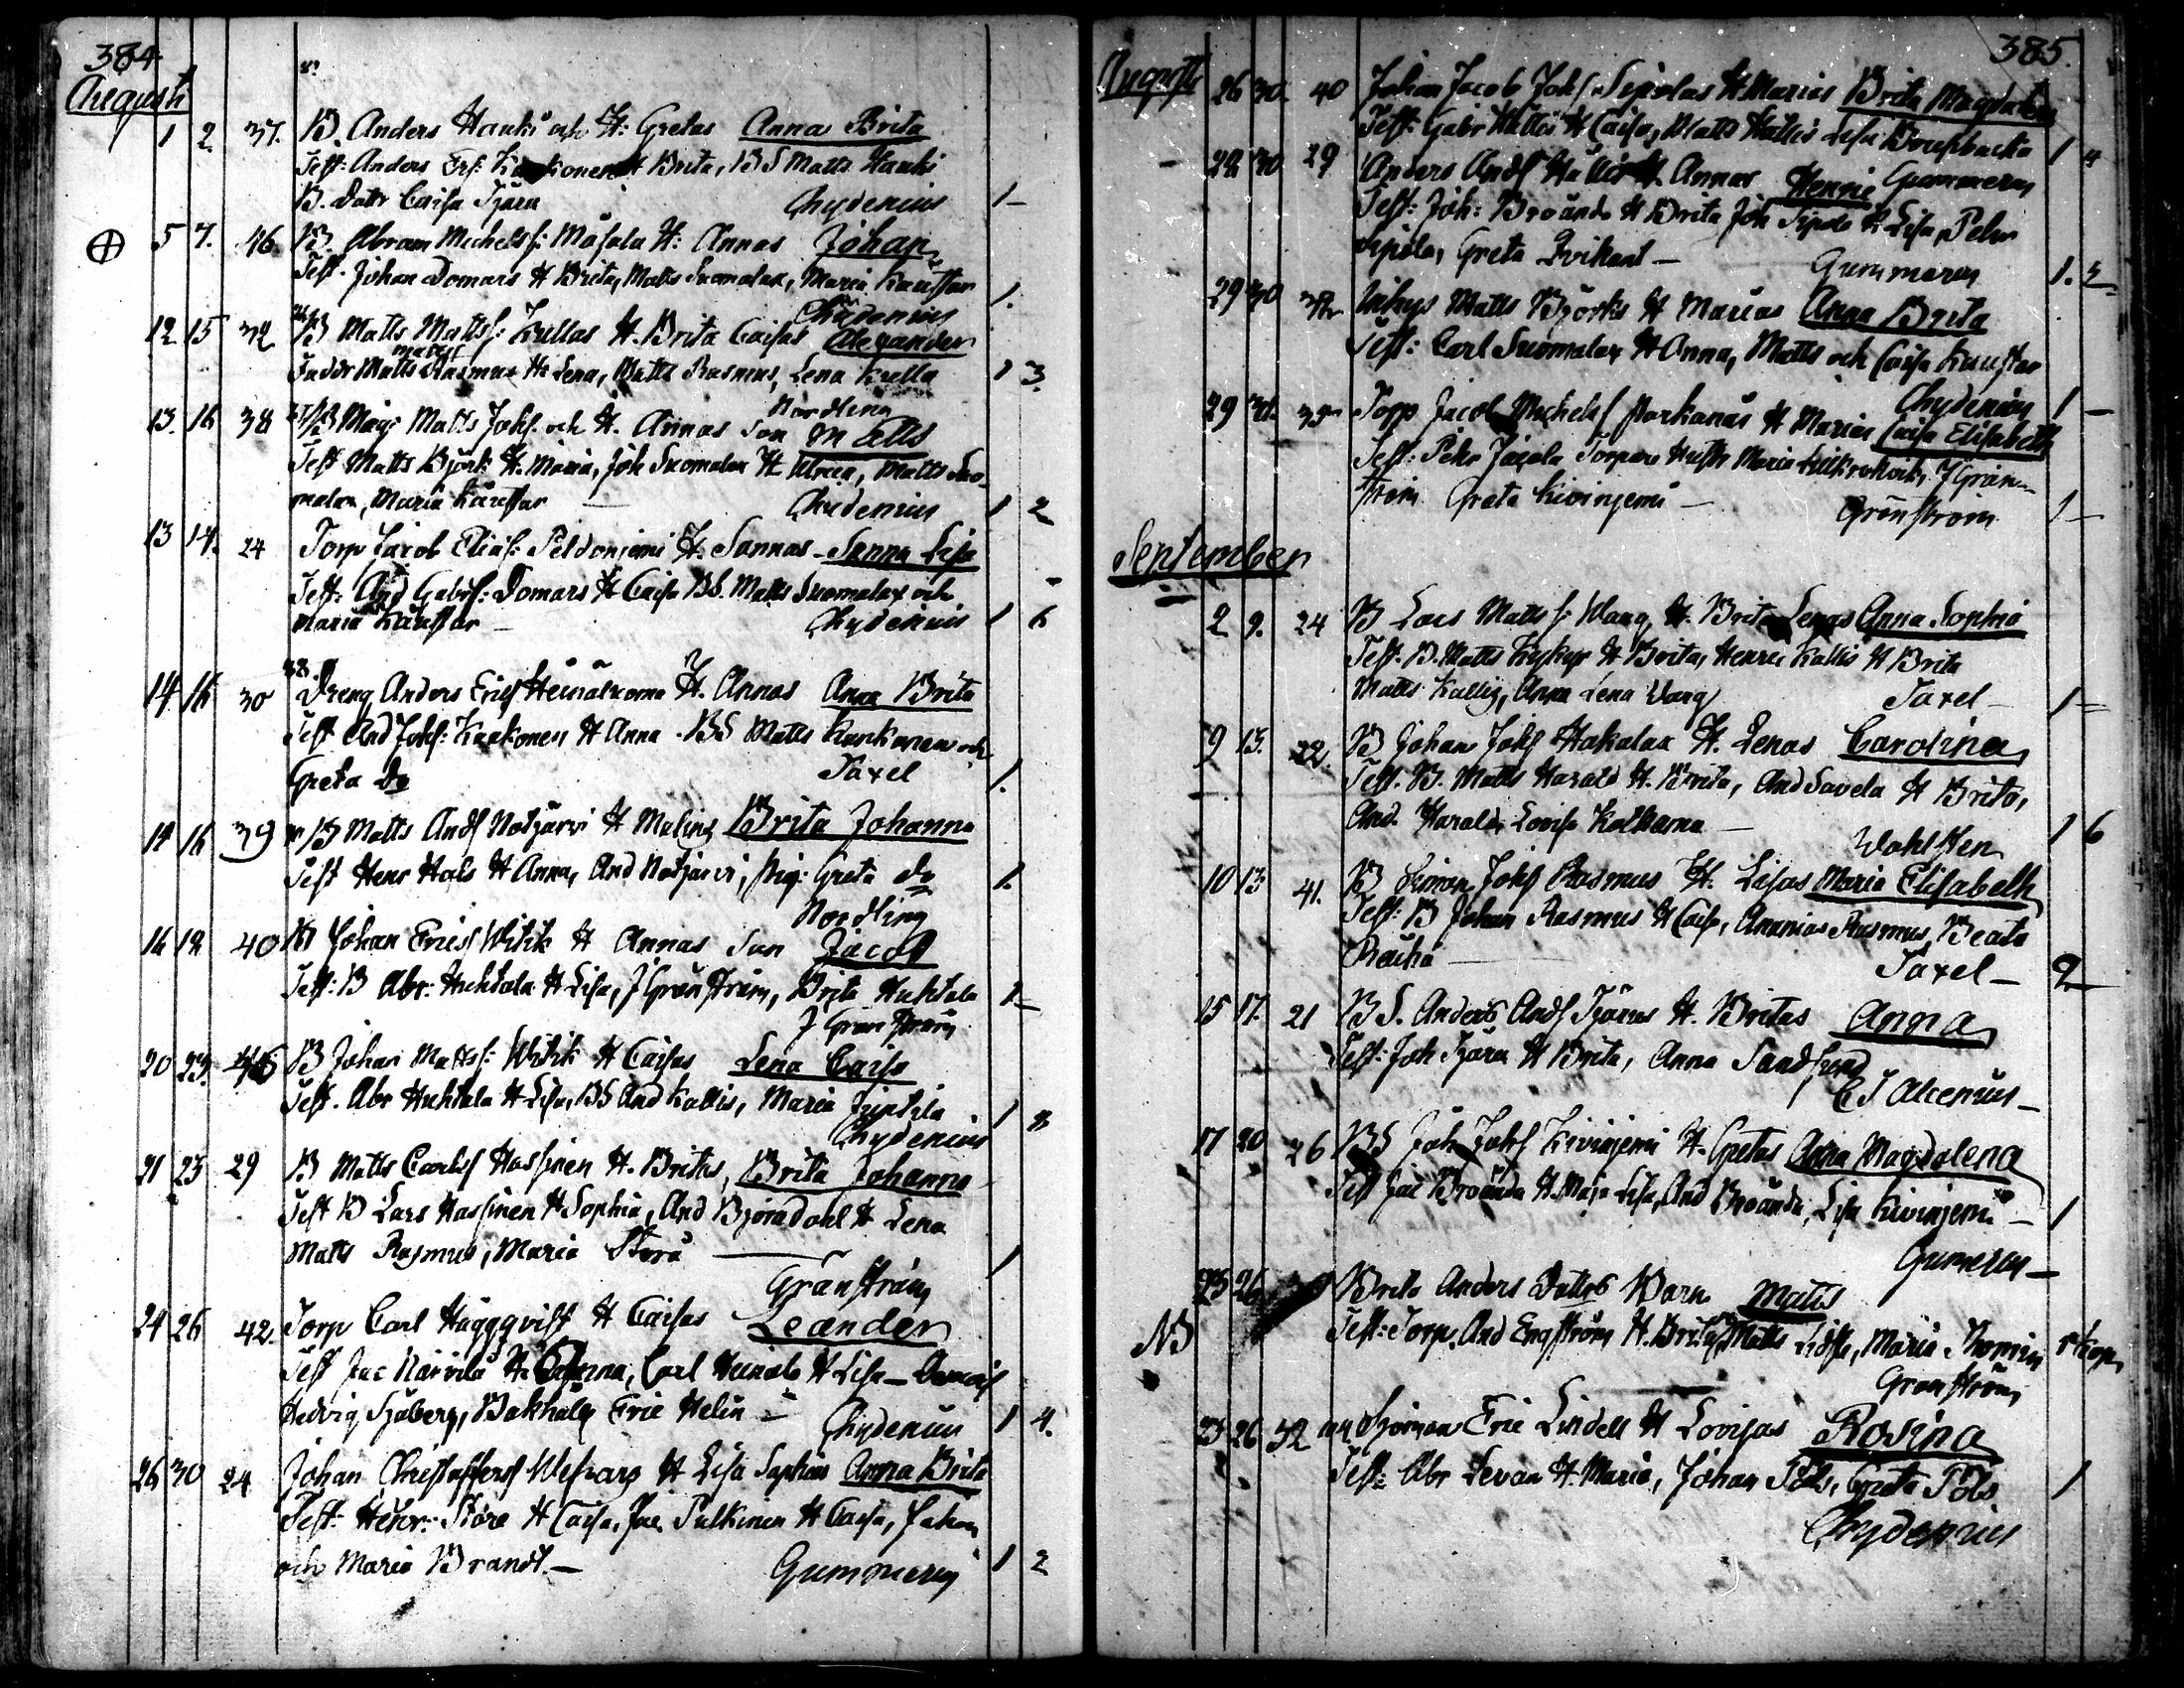 384
Augusti
1 2. 37. B. Anders Hauki och H: Gretas Anna Brita
Test: Anders Ers: H Brita, BS Matts Hauki
B. Dottr Caisa Tjäru Chydenius 1 –
5 7. 46 B. Abram Michelss: Måsala H: Annas Johan
Test. Johan Domars H Brita, Matts Suomalax, Maria Kaustar 1.
Chydenius
12 15 32 B Matts Mattss: Krellas H. Brita Caisas Alexander
Faddr Matts Rasmus H: Lena, Matts Rasmus, Lena Krella 1 3.
Nordling
13. 16 38 Matts Johs. och H. Annas Son Matts
Test Matts Björk H. Maria, Joh Suomalax H Ulrica, Matts Suo-
malax, Maria Kaustar Chydenius 1 2
13 14. 24 Torp Jacob Elias: Peldoniemi H. Sannas Sanna Lisa
Test: And Gabrs: Domars H Caisa BS. Matts Suomalax och
Maria Kaustar – Chydenius 1 6
14. 16 30 Dreng Anders Erics H. Annas Anna Brita
Test And Johs: Kaakonen H Anna. BS Matts och
Greta Do Taxel 1.
14 16 39 B Matts Ands Notjärvi H Malins Brita Johanna
Test Henr Hols H Anna, And Notjärvi, Pig: Greta do 1.
Nordling
16 18 40 B Johan Erics Witik H Annas Son Jacob
Test: B Abr: Huhtala H Lisa, J Grönström, Brita Huhtala 1 –
J Grönström
20 23. B Johan Mattss: Witik H Caisas Lena Caisa
Test. Abr Huhtala H Lisa, BS And Kallis, Maria Juntila 1 8
Chydenius
21 23 29 B Matts Carls Hassinen H. Britas, Brita Johanna
Test B Lars Hassinen H Sophia, And Björndahl H Lena
Matts Rasmus, Maria Storå 1
Grönström
24 26 42. Torp Carl Häggqvist H Caisas Leander
Test Jac Närvilä H Anna, Carl Heinola H Lisa –
Hedvig Sjöberg, Bokhåll Eric Helin – Chydenius 1 4.
26 30 24 Johan Christophers H Lisa Sophias Anna Brita
Test: Henr: Store H Caisa, Jac Pulkinen H Caisa, Johan
och Maria Brandt. – Gummerus 1 2
385.
Augusti 26 30. 40 Johan Jacob Johs Sipolas H Marias Brita Magdalena
Test: Gabr Kallis H Caisa, Matts Kallis Lisa 1 4
– 28 30 29 Anders Ands H. Annas Henric Gummerus
Test: Joh: Broända H Brita Joh Sipola H Lisa, Petr
Sipola, Greta Qvikant – Gummerus 1. 2
29 30 Matts Björks H Marias Anna Brita
Test: Carl Suomalax H Anna, Matts och Caisa Kaustar
Chydenius 1 –
29 Torp Jacob Michels Porkanås H Marias Caisa Elisabeth
Test: Petr Torpare Hustr Maria J Grön-
ström Greta Kivinjemi – Grönström 1 –
September
2 9. 24 B Lars Matts s: Wang, H. Brita Lenas Anna Sophia
Test. B. Matts H Brita, Henric Kallis H Brita
Matts Kallis, Anna Lena Wang Taxel – 1 –
9 13. 22. B Johan Johs Hakalax H. Lenas Carolina
Test. B. Matts Harald H. Brita, And Savela H Brita,
And. Harald, Lovisa 1 6
Wahlsten
10 13 41. B Simon Johs Rasmus H. Lisas Maria Elisabeth
Test: B Johan Rasmus H Caisa, Ananias Rasmus, Beata
Räihä – Taxel – 2
15 17. 21 BS. Anders Ands Tjärus H. Britas Anna
Test: Joh Tjäru H Brita, Anna
CJ Alcenius –
17 20 26 BS Joh Johs Kivinjemi H. Gretas Anna Magdalena
Test Jac Broända H. Maja Lisa, And Broända, Lisa Kivinjemi – 1
Gumerus –
23 26 Brita Anders Dottrs Barn Matts
NB Test: Torp. And Engström H. Brita, Matts Maria
Grönström
23 26 32 Sjöman Eric Lindell H Lovisas Rosina
Test: Abr Levon H. Maria, Johan Påls, Greta Påls 1
Chydenius